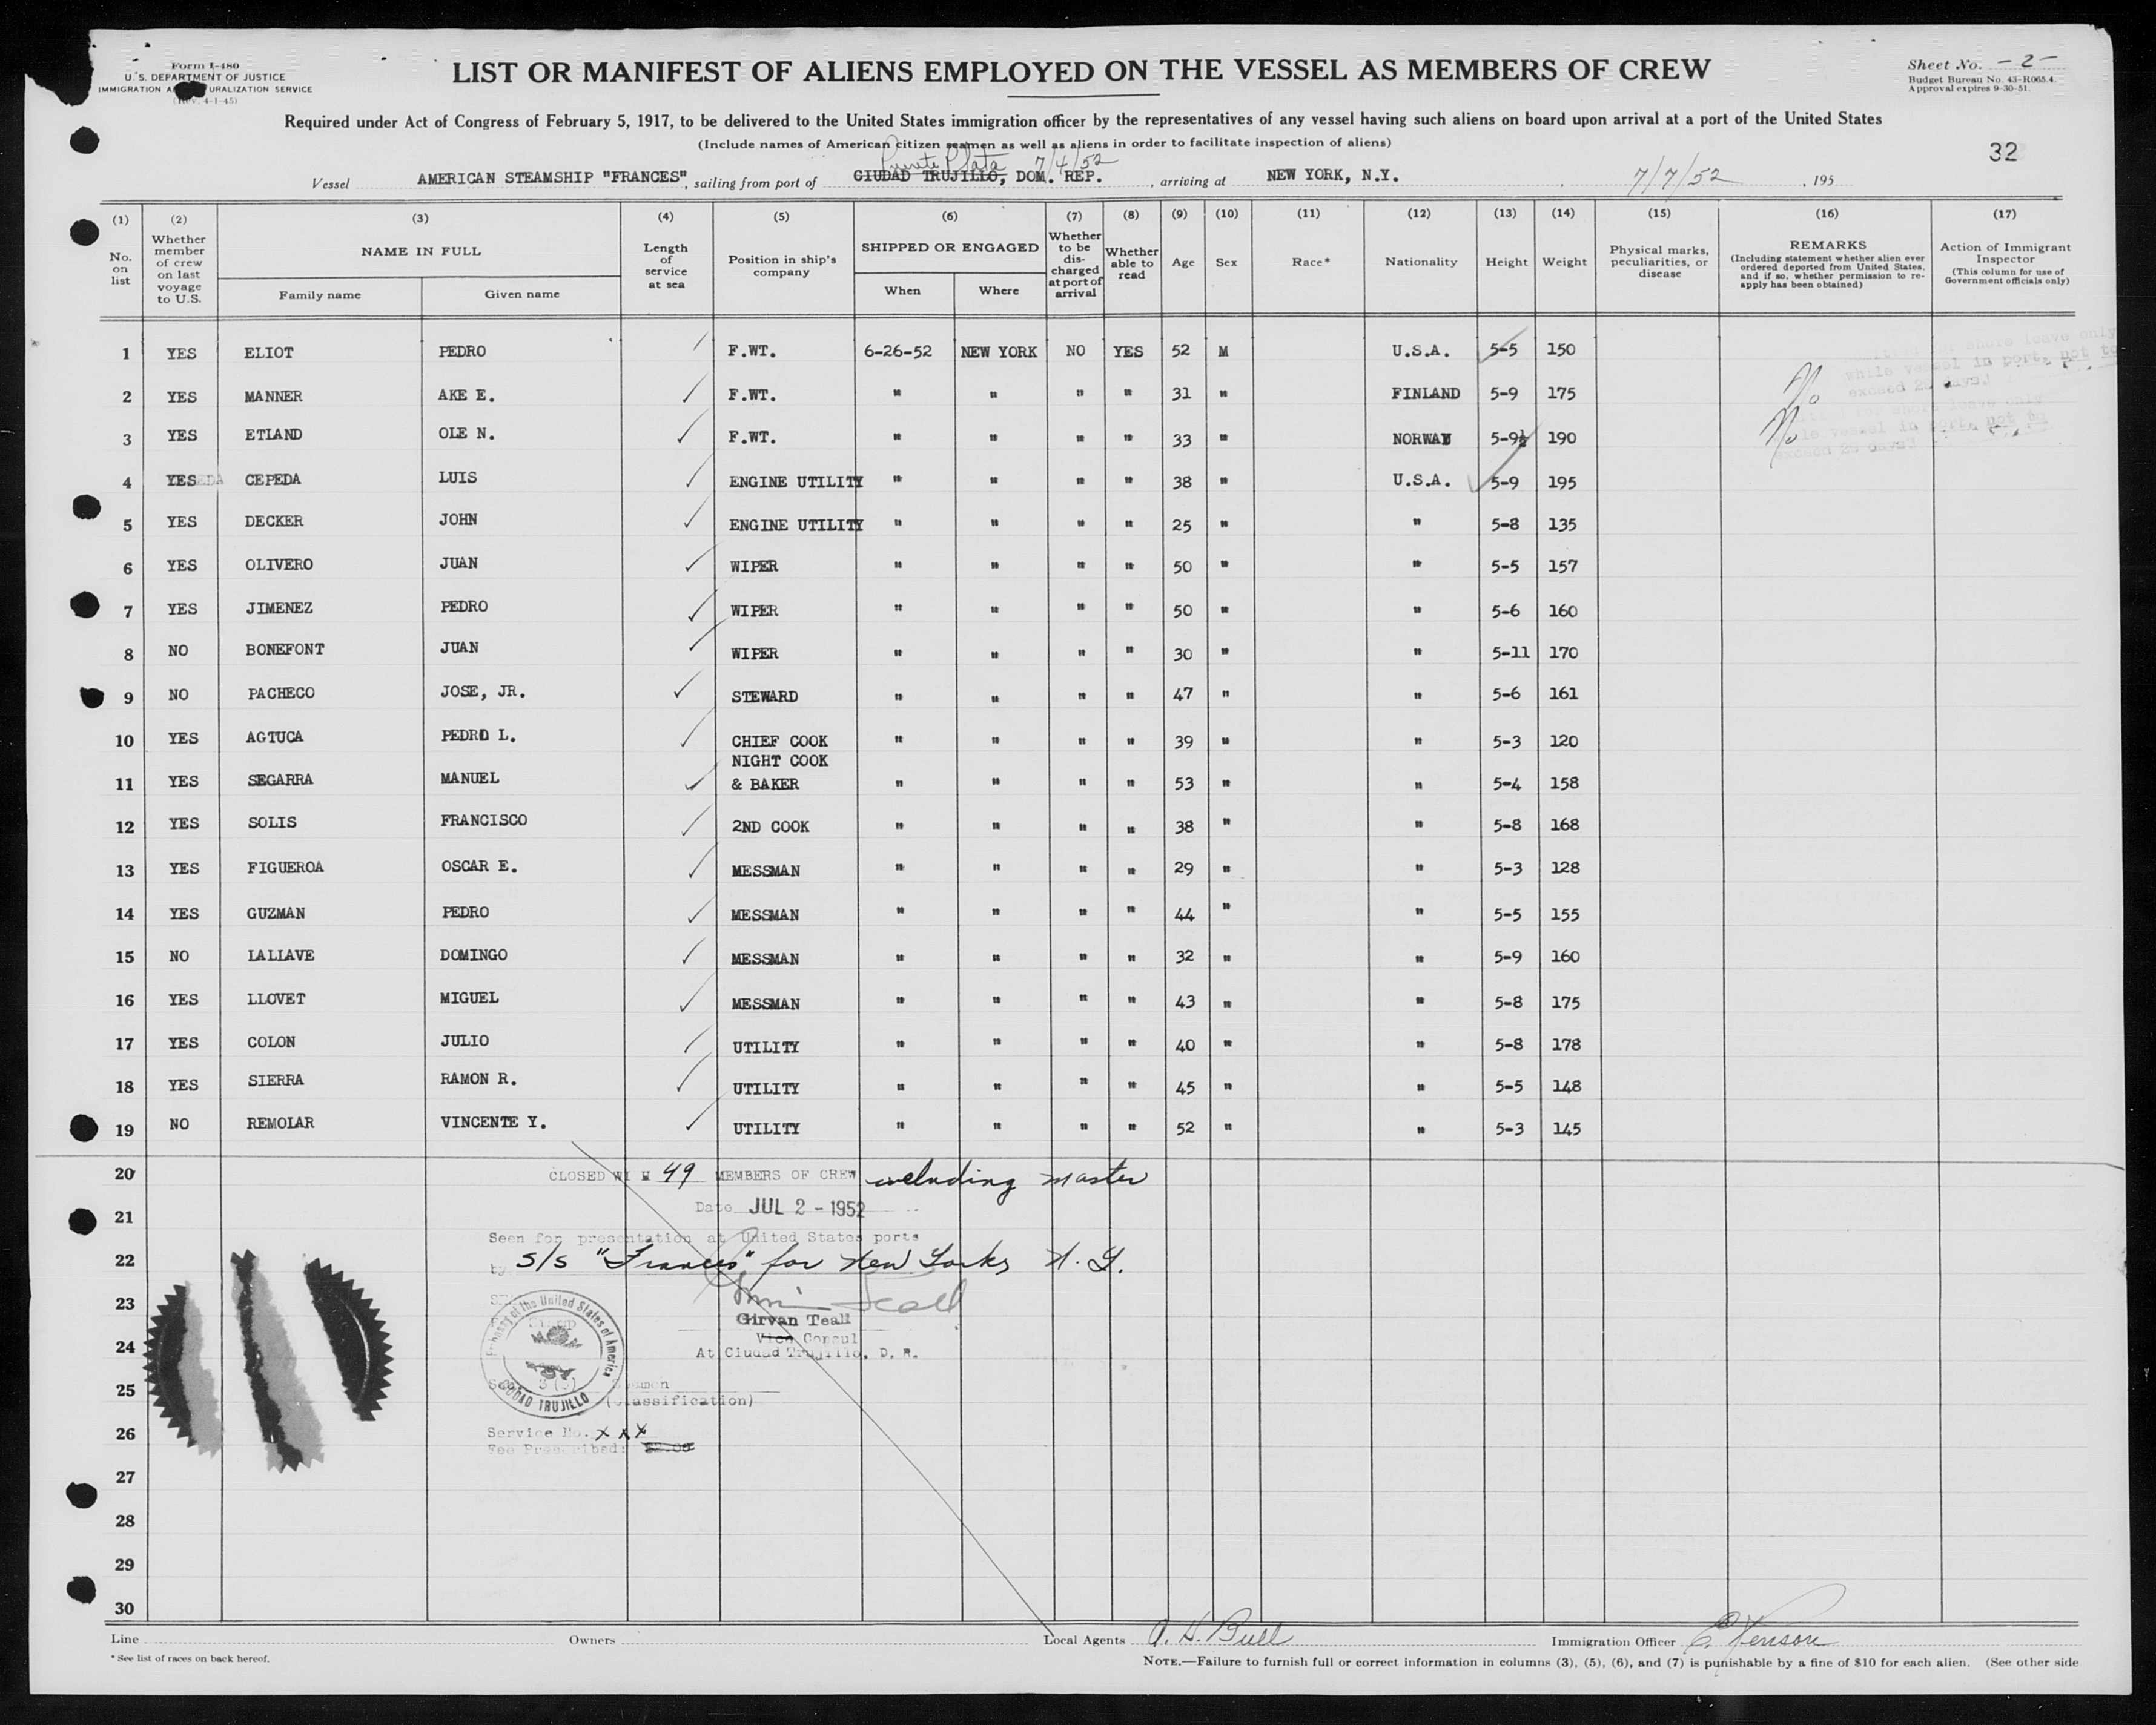 Form I-480
U. S. DEPARTMENT OF JUSTICE
IMMIGRATION A URALIZATION SERVICE
(Rev. 4-1-45)
LIST OR MANIFEST OF ALIENS EMPLOYED ON THE VESSEL AS MEMBERS OF CREW
Sheet No. - 2 -
Budget Bureau No. 43-R065.4.
Approval expires 9-30-51.
Required under Act of Congress of February 5, 1917, to be delivered to the United States immigration officer by the representatives of any vessel having such aliens on board upon arrival at a port of the United States
(Include names of American citizen seamen as well as aliens in order to facilitate inspection of aliens)
32
Puerto Plata 7/4/52
Vessel AMERICAN STEAMSHIP "FRANCES", sailing from port of CIUDAD TRUJILLO, DOM. REP., arriving at NEW YORK, N.Y. 7/7/52, 195
(1) (2) (3) (4) (5) (6) (7) (8) (9) (10) (11) (12) (13) (14) (15) (16) (17)
No. on list
Whether member of crew on last voyage to U.S.
NAME IN FULL
Family name Given name
Length of service at sea
Position in ship's company
SHIPPED OR ENGAGED
When Where
Whether to be discharged at port of arrival
Whether able to read
Age Sex Race* Nationality Height Weight
Physical marks, peculiarities, or disease
REMARKS
(Including statement whether alien ever ordered deported from United States, and if so, whether permission to re-apply has been obtained)
Action of Immigrant Inspector
(This column for use of Government officials only)
1 YES ELIOT PEDRO F.WT. 6-26-52 NEW YORK NO YES 52 M U.S.A. 5-5 150
2 YES MANNER AKE E. F.WT. " " " " 31 " FINLAND 5-9 175 No
3 YES ETLAND OLE N. F.WT. " " " " 33 " NORWAY 5-9½ 190 No
4 YES CEPEDA LUIS ENGINE UTILITY " " " " 38 " U.S.A. 5-9 195
5 YES DECKER JOHN ENGINE UTILITY " " " " 25 " " 5-8 135
6 YES OLIVERO JUAN WIPER " " " " 50 " " 5-5 157
7 YES JIMENEZ PEDRO WIPER " " " " 50 " " 5-6 160
8 NO BONEFONT JUAN WIPER " " " " 30 " " 5-11 170
9 NO PACHECO JOSE, JR. STEWARD " " " " 47 " " 5-6 161
10 YES AGTUCA PEDRO L. CHIEF COOK " " " " 39 " " 5-3 120
NIGHT COOK
11 YES SEGARRA MANUEL & BAKER " " " " 53 " " 5-4 158
12 YES SOLIS FRANCISCO 2ND COOK " " " " 38 " " 5-8 168
13 YES FIGUEROA OSCAR E. MESSMAN " " " " 29 " " 5-3 128
14 YES GUZMAN PEDRO MESSMAN " " " " 44 " " 5-5 155
15 NO LALLAVE DOMINGO MESSMAN " " " " 32 " " 5-9 160
16 YES LLOVET MIGUEL MESSMAN " " " " 43 " " 5-8 175
17 YES COLON JULIO UTILITY " " " " 40 " " 5-8 178
18 YES SIERRA RAMON R. UTILITY " " " " 45 " " 5-5 148
19 NO REMOLAR VINCENTE Y. UTILITY " " " " 52 " " 5-3 145
20 CLOSED WI H 49 MEMBERS OF CREW including master
21 Date JUL 2 - 1952
Seen for presentation at United States ports
22 by S/S "Frances" for New York, N. Y.
23
Girvan Teall
24 Vice Consul
At Ciudad Trujillo, D. R.
Embassy of the United States of America
CIUDAD TRUJILLO
25 3 (5)
(Classification)
26 Service No. x x x
Fee Prescribed:
27
28
29
30
Line Owners Local Agents A. H. Bull Immigration Officer
* See list of races on back hereof.
NOTE.—Failure to furnish full or correct information in columns (3), (5), (6), and (7) is punishable by a fine of $10 for each alien. (See other side